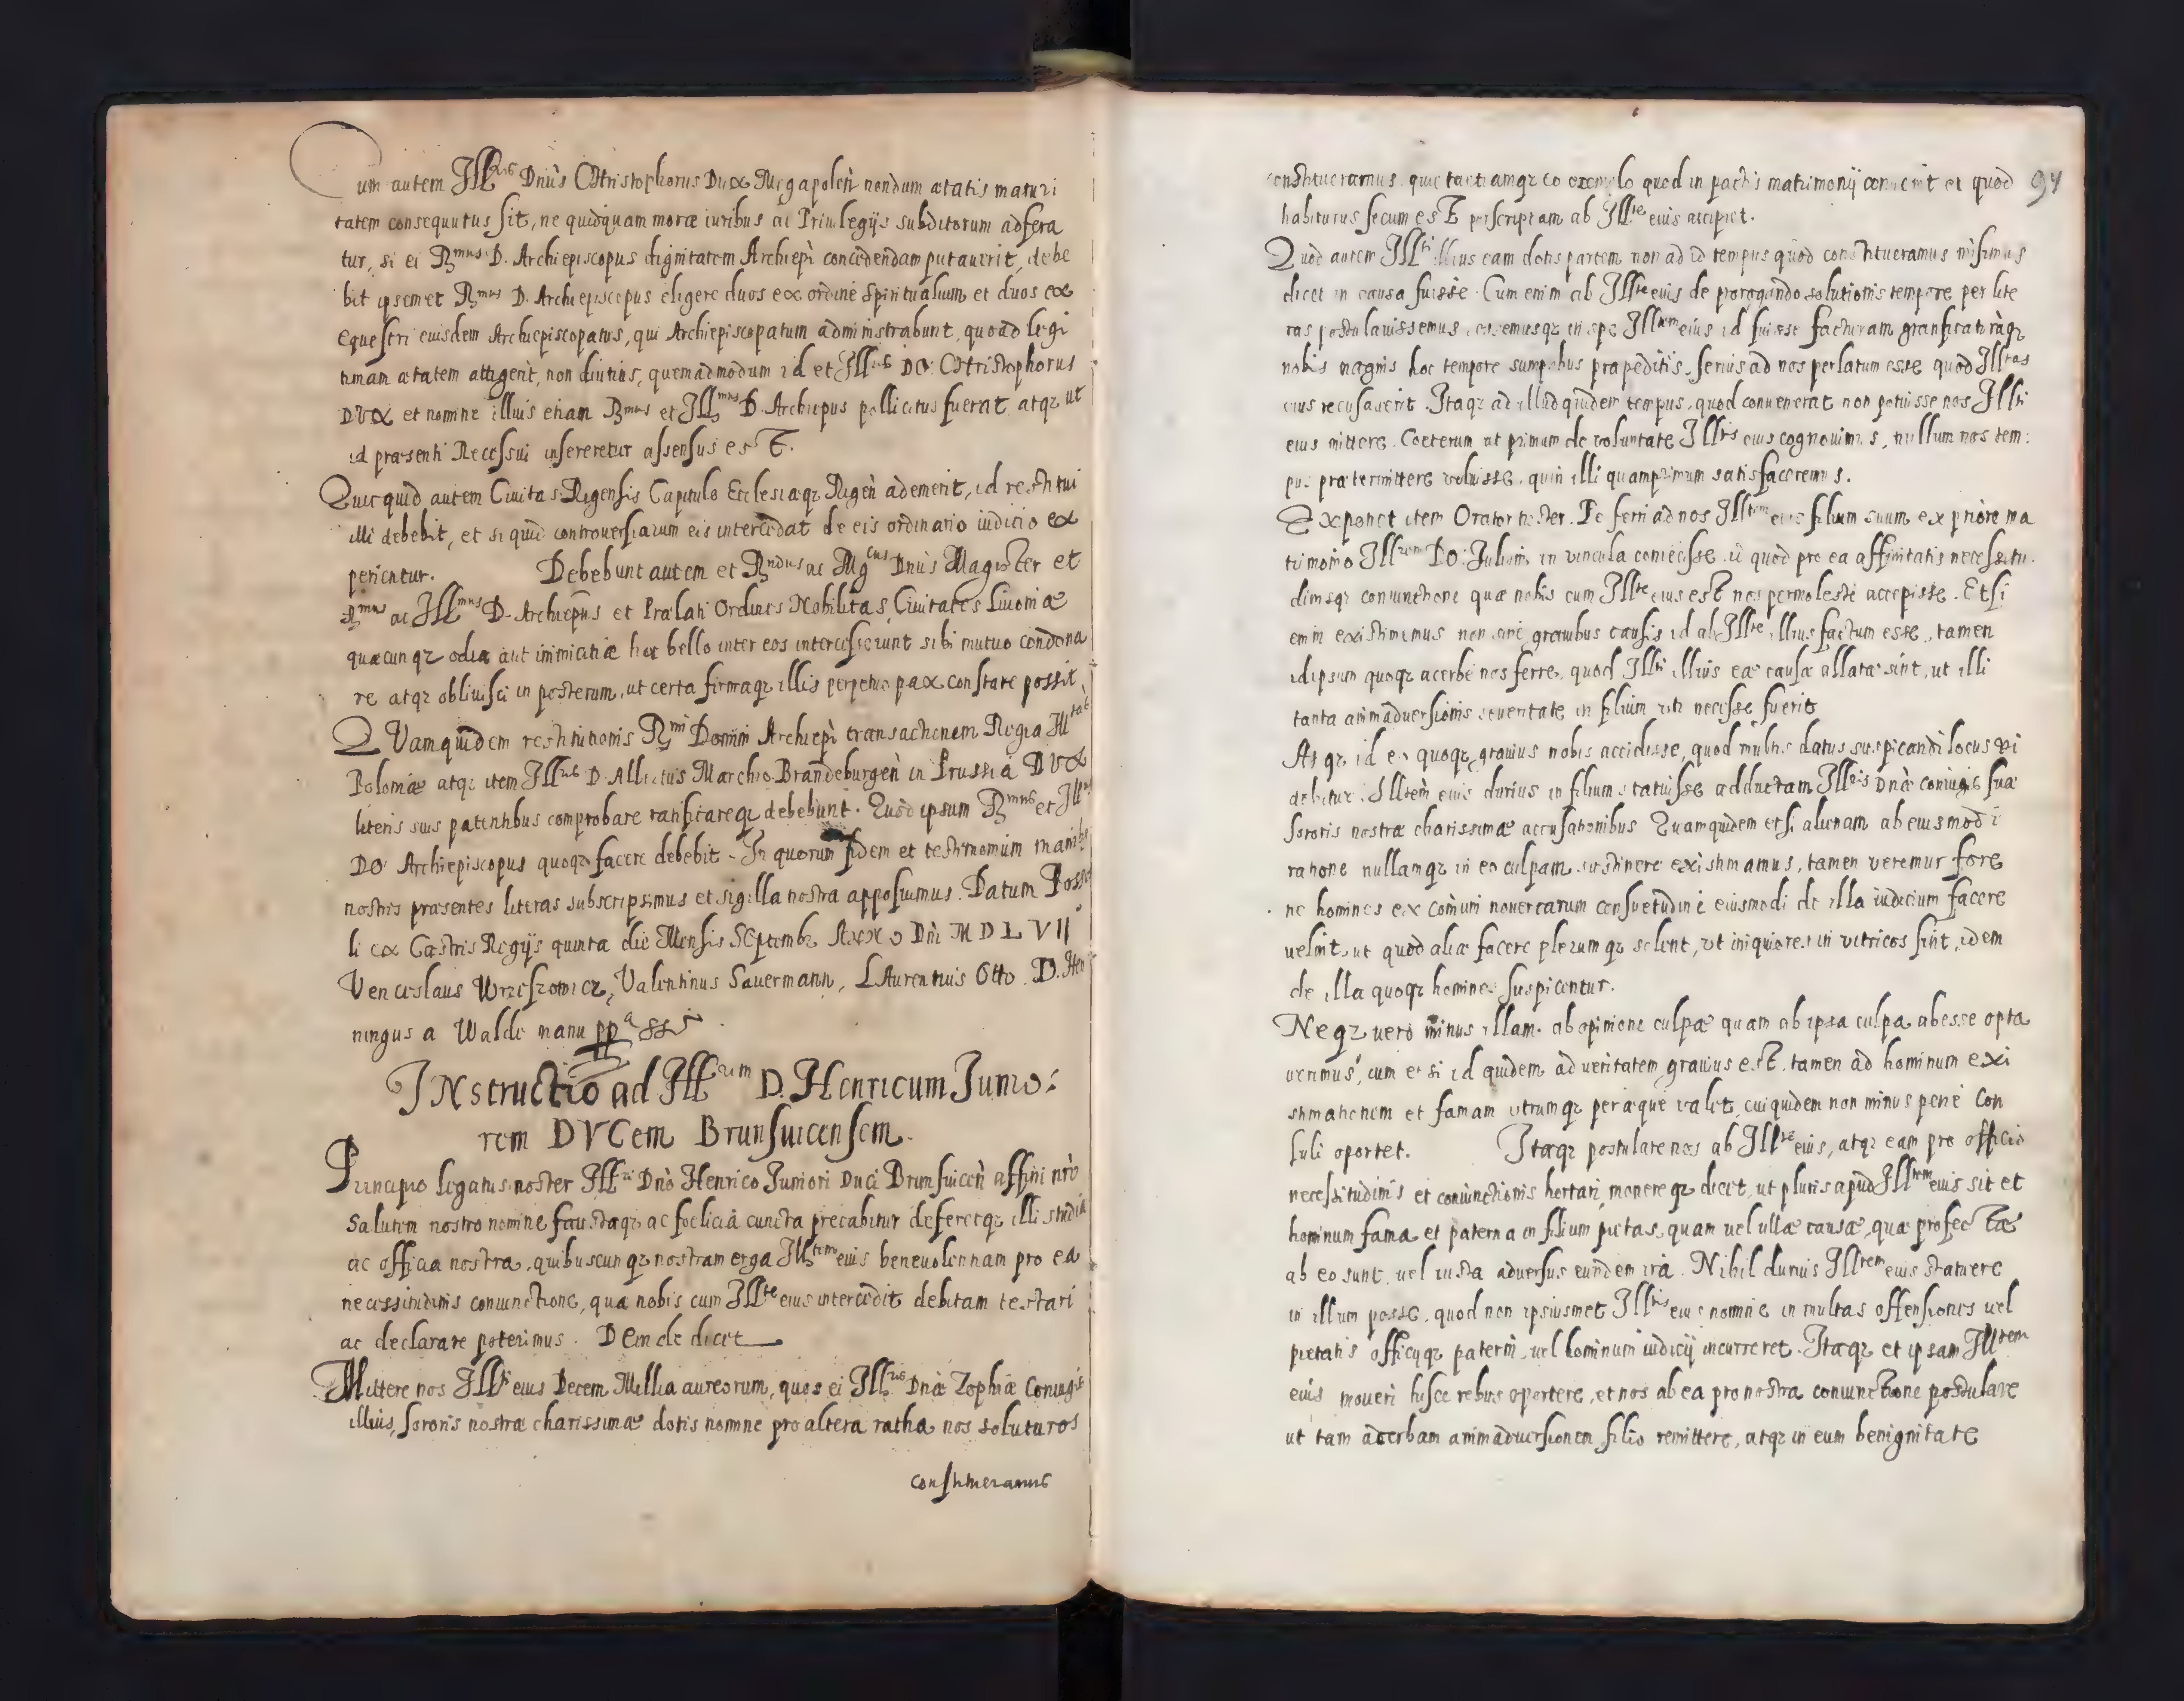 Cum autem Ill^us Dnus Christophorus Dux Megapoleñ nondum ætatis maturi
tatem consequutus sit, ne quidquam moræ iuribus ac Priuilegijs subditorum adfera
tur, si ei R^mus D. Archiepiscopus dignitatem Archiepi concedendam putauerit, debe
bit ipsemet R^mus D. Archiepiscopus eligere duos ex ordine Spiritualium et duos ex
equestri eiusdem Archiepiscopatus, qui Archiepiscopatum administrabunt, quoad legi
timam ætatem attigerit, non diutius, quemadmodum id et Ill^us DO: Christophorus
DVX et nomine illius etiam R^mus et Ill^mus D. Archiepus pollicitus fuerat atqz ut
id præsenti Recessui insereretur assensus est.
Quicquid autem Ciuitas Rigensis Capitulo Ecclesiæqz Rigeñ ademerit, id restitui
illi debebit, et si quid controuersiarum eis intercedat de eis ordinario iudicio ex
perientur. Debebunt autem et R^ndus ac Mg^cus Dnus Magister et
R^mus ac Ill^mus D. Archiepus et Prælati Ordines Nobilitas, Ciuitates Liuoniæ
quæcunqz odia aut inimicitiæ hoc bello inter eos intercesserunt sibi mutuo condona
re atqz obliuisci in posterum, ut certa firmaqz illis perpetuo pax constare possit.
QVamquidem restitutionis R^mi Domini Archiepi transactionem Regia M^tas
Poloniæ atqz item Ill^us D. Albertus Marchio Brandeburgeñ in Prussia DVX
literis suis patentibus comprobare ratificareqz debebunt. Quod ipsum R^mus et Ill^us
DO: Archiepiscopus quoqz facere debebit. In quorum fidem et testimonium manibs
nostris præsentes literas subscripsimus et sigilla nostra apposuimus. Datum Poss
li ex Castris Regijs quinta die Mensis Septembr Anno Dni MDLVII
Venceslaus Wrzeszowicz, Valentinus Sauermann, LAurentius Otto. D. Hen
ningus a Walde manu ppa sst
INstructio ad Ill^um D. Henricum Iunio:
rem DVCem Brunsuicensem.
Principio legatus noster Ill^ri Dno Henrico Iuniori Duci Brunsuiceñ affini nro
salutem nostro nomine faustaqz ac foelicia cuncta precabitur deferetqz illi studia
ac officia nostra, quibuscunqz nostram erga Ill^tem eius beneuolentiam pro ea
necessitudinis coniunctione, quæ nobis cum Ill^te eius intercedit debitam testari
ac declarare poterimus. DEinde dicet
Mittere nos Ill^ti eius Decem Millia aureorum, quos ei Ill^us Dnæ Zophiæ Coniugis
illius, sororis nostræ charissimæ dotis nomine pro altera ratha nos soluturos
constitueramus
constitueramus, quietantiamqz eo exemplo quod in pactis matrimonij conuenit et quod 94
habiturus secum est perscriptam ab Ill^te eius accipiet.
Quod autem Ill^ti illius eam dotis partem non ad id tempus quod constitueramus misimus
dicet in causa fuisse. Cum enim ab Ill^te eius de prorogando solutionis tempore per lite
ras postulauissemus, essemusqz in spe Ill^tem eius id fuisse facturam gratificaturaqz
nobis magnis hoc tempore sumptibus præpeditis, serius ad nos perlatum esse quod Ill^tas
eius recusauerit. Itaqz ad illud quidem tempus, quod conuenerat non potuisse nos Ill^ti
eius mittere. Cæterum ut primum de voluntate Ill^tis eius cognouimus, nullum nos tem:
pus prætermittere voluisse, quin illi quamprimum satisfaceremus.
Exponet item Orator noster. Perferri ad nos Ill^tem eius filium suum ex priore ma
trimonio Ill^rem Do: Iulium in vincula coniecisse. id quod pro ea affinitatis necessitu
dinisqz coniunctione quæ nobis cum Ill^te eius est nos permoleste accepisse. Etsi
enim existimemus non sine grauibus causis id ab Ill^te illius factum esse, tamen
idipsum quoqz acerbe nos ferre, quod Ill^ti illius eæ causæ allatæ sint, ut illi
tanta animaduersionis seueritate in filium uti necesse fuerit
Atqz id eo quoqz grauius nobis accidisse, quod multis datus suspicandi locus vi
debitur. Ill^tem eius durius in filium statuisse adductam Ill^ris Dnæ coniugis suæ
sororis nostræ charissimæ accusationibus Quamquidem etsi alienam ab eiusmodi
ratione nullamqz in eo culpam sustinere existimamus, tamen veremur fore
ne homines ex comuni nouercarum consuetudine eiusmodi de illa iudicium facere
uelint, ut quod aliæ facere plerumqz solent, vt iniquiores in vitricos sint, idem
de illa quoqz homines suspicentur.
Neqz vero minus illam ab opinione culpæ quam ab ipsa culpa abesse opta
uerimus, cum etsi id quidem ad ueritatem grauius est, tamen ad hominum exi
stimationem et famam utrumqz peræque valet, cui quidem non minus pene con
suli oportet. Itaqz postulare nos ab Ill^te eius, atqz eam pro officio
necessitudinis et coniunctionis hortari, monereqz dicet, ut pluris apud Ill^tem eius sit et
hominum fama et paterna in filium pietas, quam uel ullæ causæ, quæ profectæ
ab eo sunt, uel iusta aduersus eundem ira. Nihil durius Ill^tem eius statuere
in illum posse, quod non ipsiusmet Ill^tis eius nomine in multas offensiones uel
pietatis officijqz paterni, uel hominum iudicij incurreret. Itaqz et ipsam Ill^tem
eius moueri hisce rebus oportere, et nos ab ea pro nostra coniunctione postulare
ut tam acerbam animaduersionem filio remittere, atqz in eum benignitate